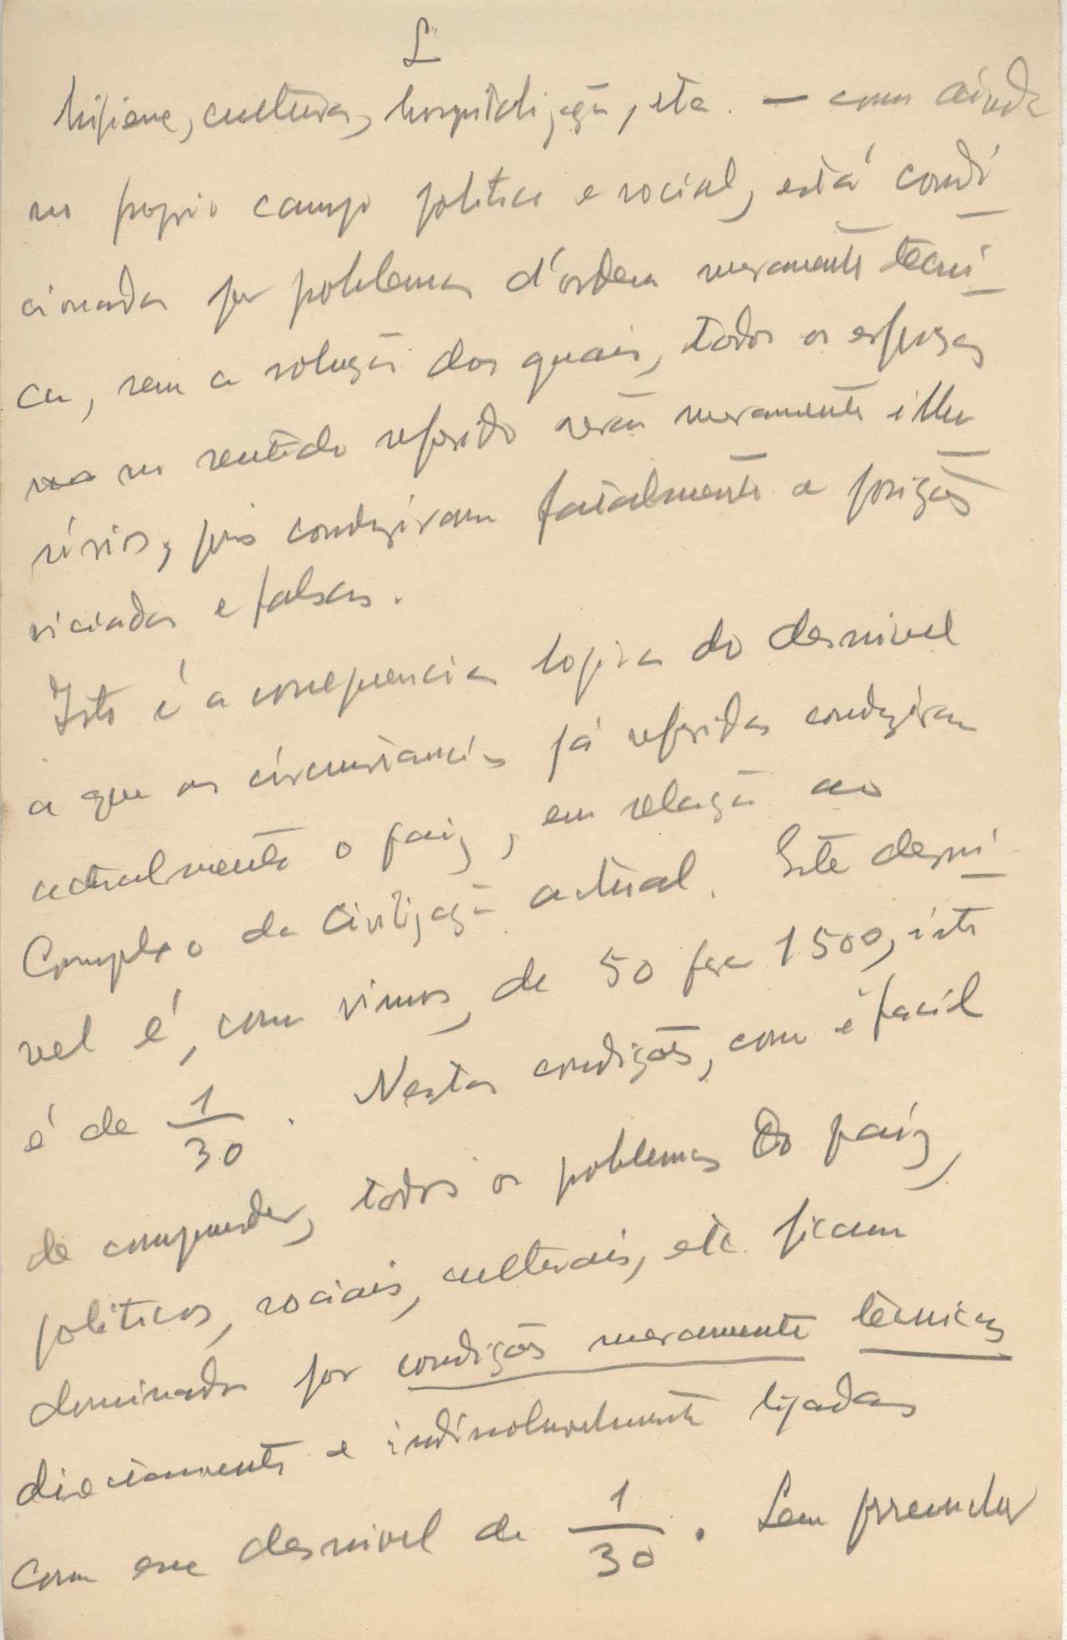 L
higiene, cultura, hospitalização, etc. — como ainda
no proprio campo politico e social, está condi
cionada por problemas d'ordem meramente tecni
ca, sem a solução dos quais, todos os esforços
no sentido referido serão meramente illu
sórios, pois conduziram fatalmente a posições
viciadas e falsas.
Isto é a consequencia logica do desnivel
a que as circunstancias já referidas conduziram
actualmente o paiz, em relação ao
Complexo da Civilização actual. Este desni
vel é, como vimos, de 50 para 1500, isto
é de 1/30. Nestas condições, como é facil
de compreender, todos os problemas do paiz,
politicos, sociais, culturais, etc. ficam
dominados por condições meramente tècnicas
directamente e indissoluvelmente ligadas
com esse desnivel de 1/30. Sem preencher